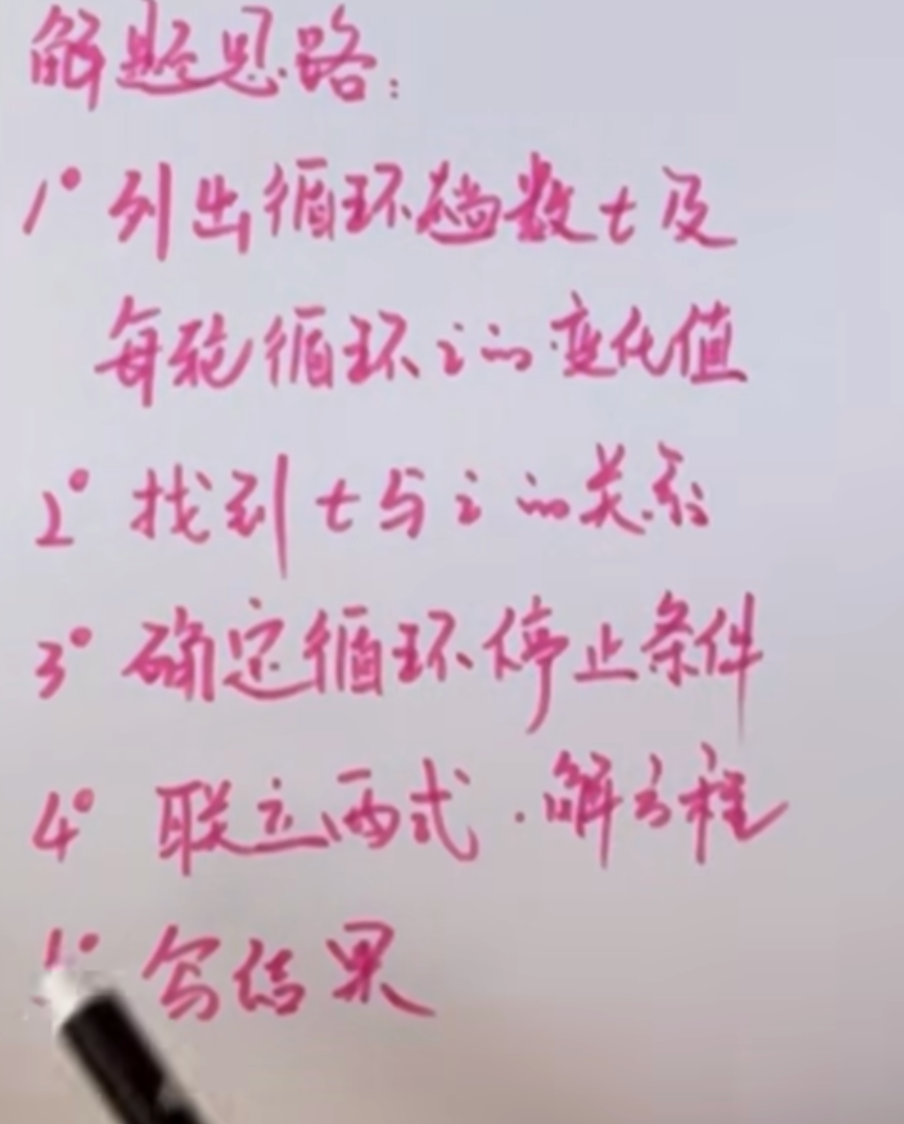 解题思路:
1° 列出循环趟数t及
每轮循环i的变化值
2° 找到t与i的关系
3° 确定循环停止条件
4° 联立两式.解方程
写结果